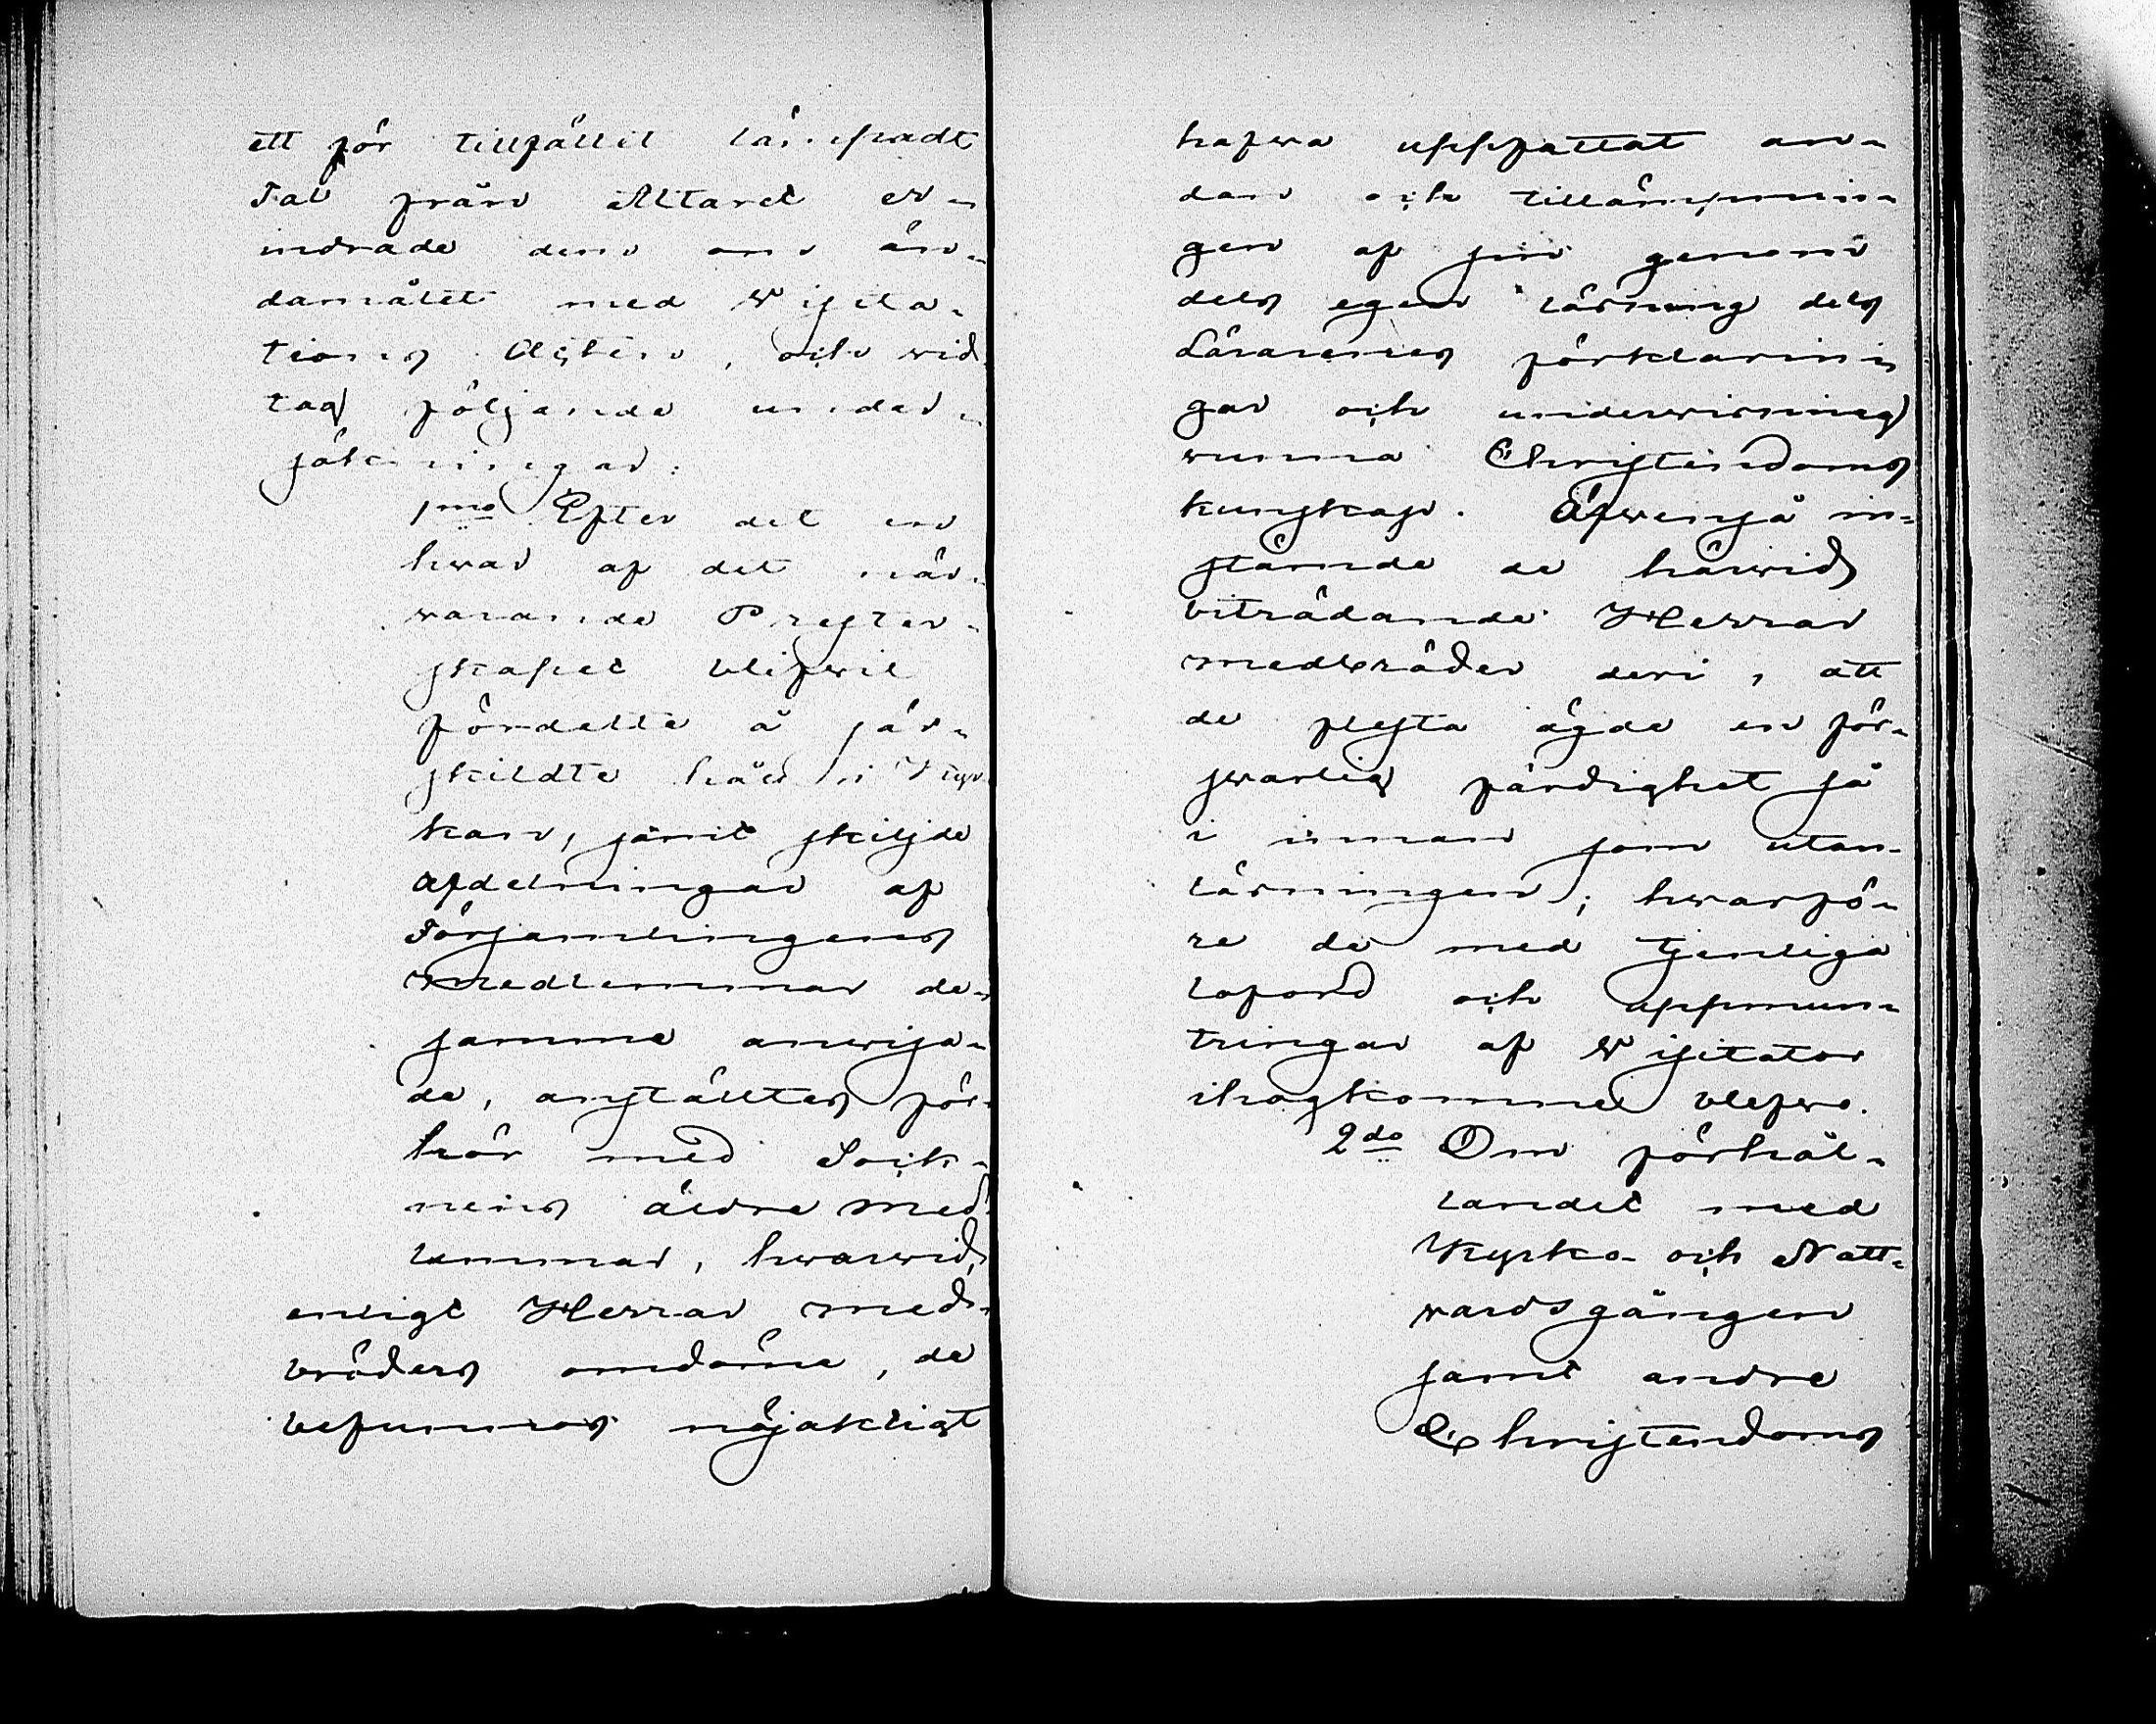 ett för tillfället lämpadt
Tal från Altaret er-
indrade dem om än-
damålet med Visita-
tions Acten, och vid-
tag följande under-
sökningar:
1mo Efter det en
hvar af det när-
varande Prester-
skapet blifvit
fördelte å sär-
skildte håll i Kyr-
kan, samt skiljde
afdelningar af
Församlingens
medlemmar de-
samma anvisa-
de, anställtes för-
hör med Sock-
nens äldre med-
lemmar, hvarvid,
enligt Herrar med-
bröders omdöme, de
befunnos nöjaktigt
hafva uppfattat an-
dan och tillämpnin-
gen af sin genom
dels egen läsning dels
Lärarenes förklarin-
gar och undervisning
vunna Christendoms
kunskap. Äfvenså in-
stämde de härvid
biträdande Herrar
medbröder deri, att
de flesta ägde en för-
svarlig färdighet så
i innan som utan-
läsningen; hvarfö-
re de med tjenliga
loford och uppmun-
tringar af Visitator
ihågkomne blefvo.
2do Om förhål-
landet med
Kyrko- och Natt-
vardsgången
samt andre
Christendoms